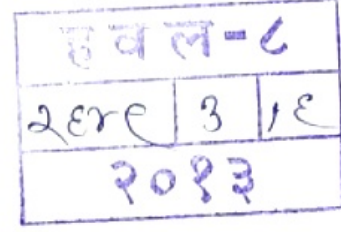 हवल-८
२६४९ ३ १६
२०१३